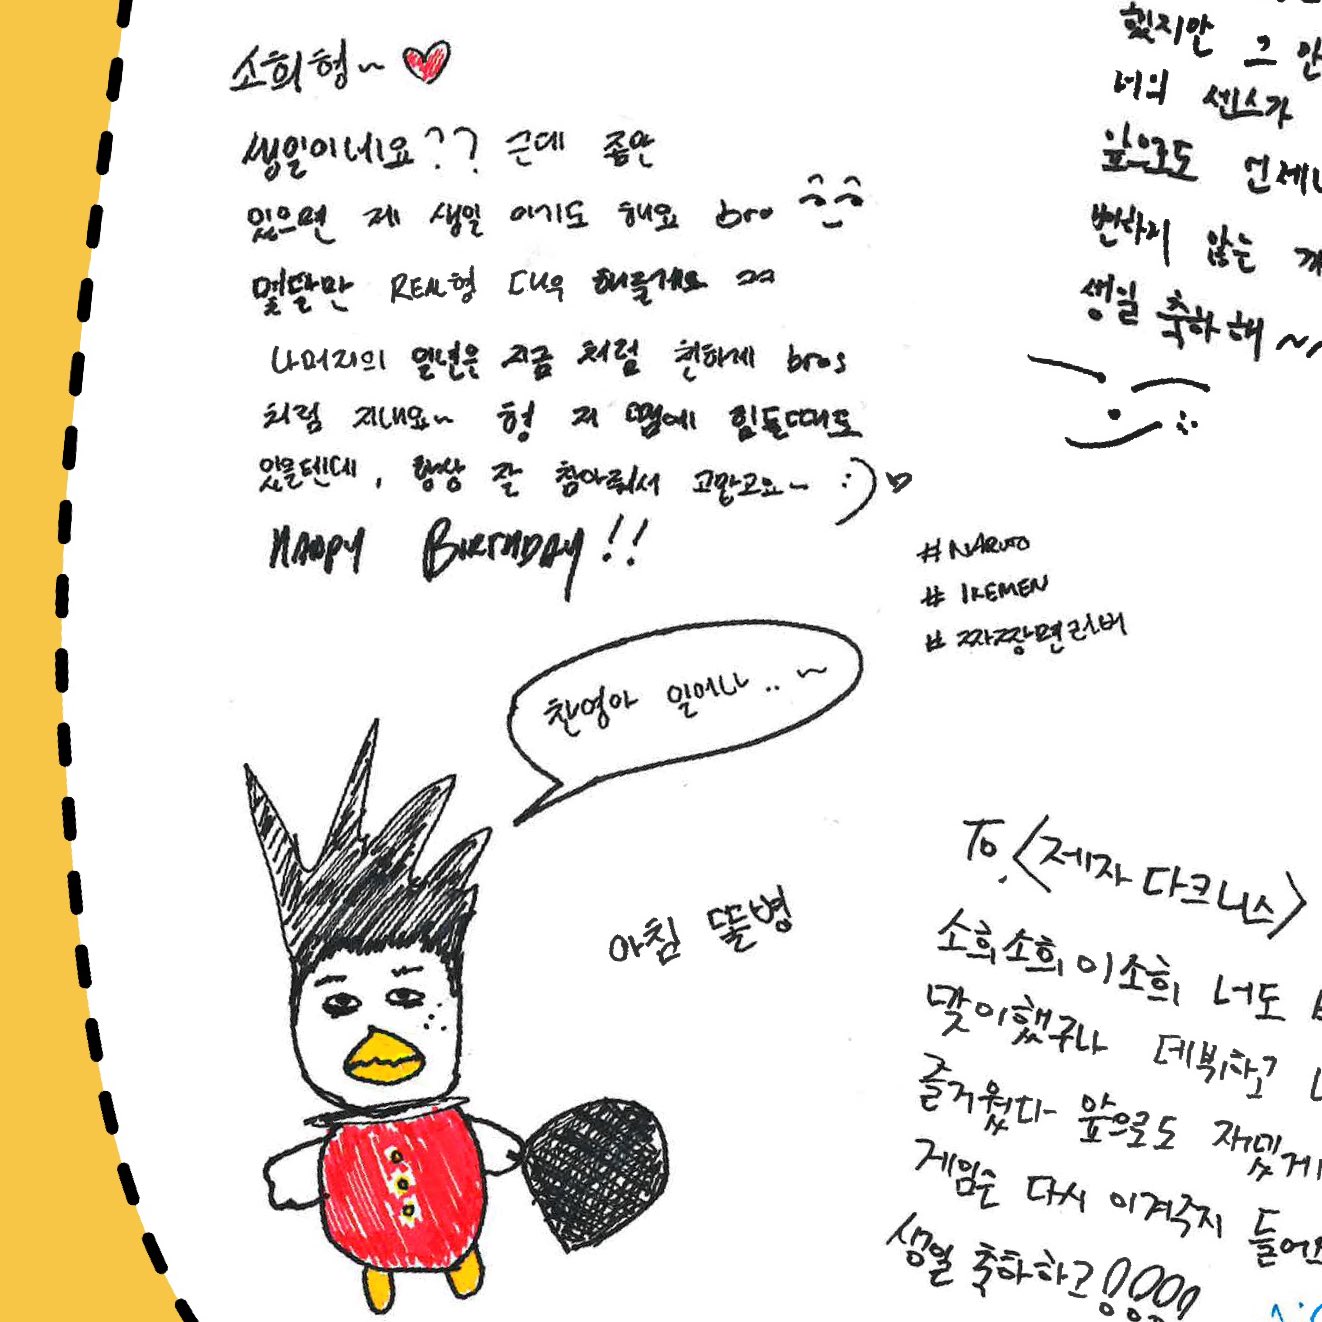 소희형~
생일이네요?? 근데 좀만
있으면 제 생일 이기도 해요 bro
몇달만 REAL형 대우 해줄게요 ㅋㅋ
나머지의 일년은 지금 처럼 친하게 bros
처럼 지내요~ 형 저 땜에 힘들때도
있을텐데, 항상 잘 참아줘서 고맙고요~ :)
HAPPY BIRTHDAY!!
#NARUTO
#IKEMEN
#짜장면러버
찬영아 일어나..~
아침 똘병
했지만 그
너의 센스가
앞으로도 언제나
변하지 않는
생일 축하해~~
To.<제자 다크니스>
소희소희이소희 너도
맞이했구나 데뷔하고
즐거웠다 앞으로도 재밌게
게임은 다시 이겨주지 들어와
생일 축하하고!!!!!